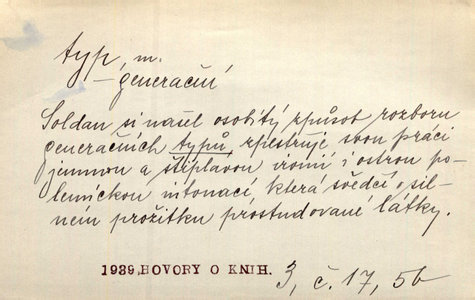 typ, m.
– generační
Soldan si našel osobitý způsob rozboru
generačních typů, zpestřuje svou práci
jemnou a štiplavou ironií i ostrou po-
lemickou intonací, která svědčí o sil-
ném prožitku prostudované látky.
1939, HOVORY O KNIH. 3, č. 17, 5b